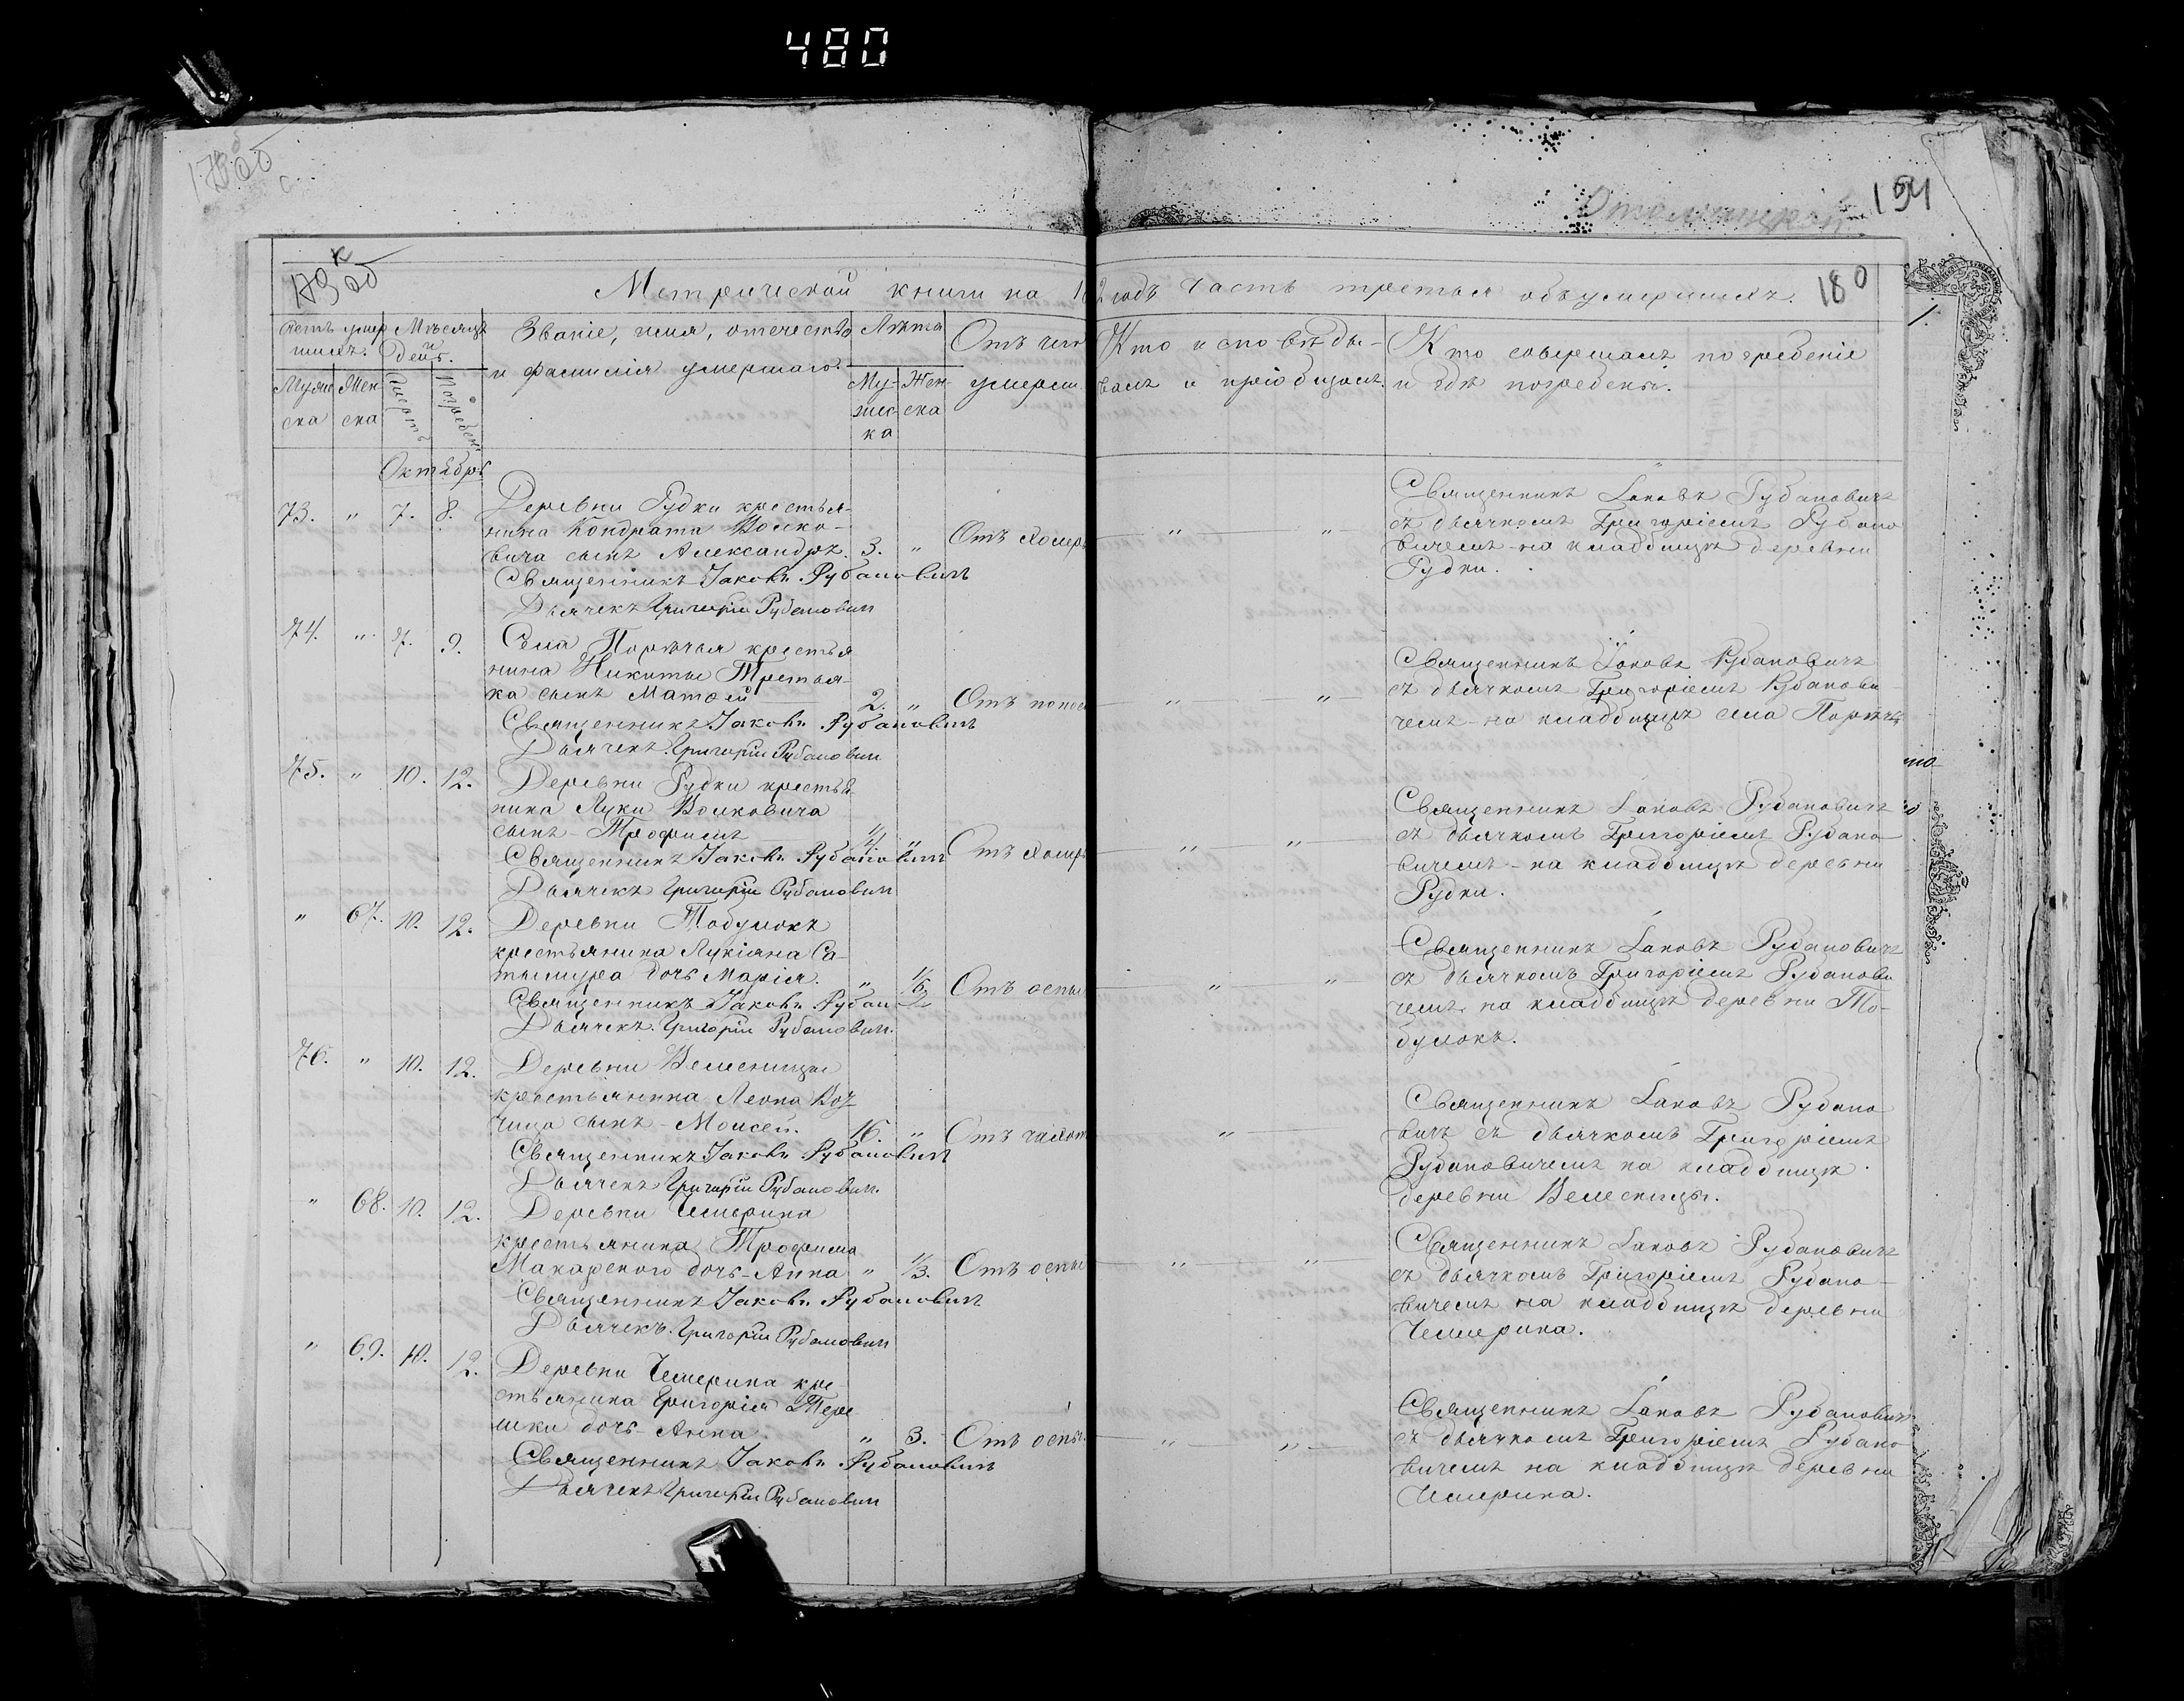 480
194
180
Метрической книги на 18 2 годъ часть третья объ умершихъ.
Счетъ умер
шихъ.
Мѣсяцъ
и
день.
Званіе, имя, отечество
и фамилія умершаго.
Лѣта
Отъ чего
умерли
Кто исповѣды-
валъ и пріобщалъ.
Кто совершалъ погребеніе
и гдѣ погребены.
Муже
ска
Жен
ска
Смерть
Погребен.
Му-
жес-
ка
Жен-
ска
Октябрь
73. " 7. 8. Деревни Рудки крестья-
нина Кондрата Волко-
вича сынъ Александръ. 3. " Отъ холеры " "
Священникъ Іаковъ Рубановичъ
Дьячекъ Григорій Рубановичъ
Священникъ Іаковъ Рубановичъ
съ дьячкомъ Григоріемъ Рубано
вичемъ на кладбищѣ деревни
Рудки.
74. " 7. 9. Села Порѣчья крестья
нина Никиты Третья-
ка сынъ Матѳей 2. " Отъ понос " "
Священникъ Іаковъ Рубановичъ
Дьячекъ Григорій Рубановичъ
Священникъ Іаковъ Рубановичъ
съ дьячкомъ Григоріемъ Рубанови-
чемъ на кладбищѣ села Порѣчья
75. " 10. 12. Деревни Рудки крестья
нина Луки Волковича
сынъ Трофимъ 4. " Отъ холеры " "
Священникъ Іаковъ Рубановичъ
Дьячекъ Григорій Рубановичъ
Священникъ Іаковъ Рубановичъ
съ дьячкомъ Григоріемъ Рубано
вичемъ на кладбищѣ деревни
Рудки.
" 67. 10. 12. Деревни Тобулокъ
крестьянина Лукіяна Са-
тымура дочь Марія. " Отъ оспы " "
Священникъ Іаковъ Рубан
Дьячекъ Григорій Рубановичъ.
Священникъ Іаковъ Рубановичъ
съ дьячкомъ Григоріемъ Рубанови
чемъ на кладбищѣ деревни То-
булокъ.
76. " 10. 12. Деревни Велесницы
крестьянина Леона Коз
чица сынъ Моисей. 16. " Отъ чахот " 
Священникъ Іаковъ Рубановичъ
Дьячекъ Григорій Рубановичъ.
Священникъ Іаковъ Рубано
вичъ съ дьячкомъ Григоріемъ
Рубановичемъ на кладбищѣ
деревни Велесницы.
" 68. 10. 12. Деревни Чемерина
крестьянина Трофима
Макарского дочь Анна " 1/3. Отъ оспы " "
Священникъ Іаковъ Рубановичъ
Дьячекъ Григорій Рубановичъ
Священникъ Іаковъ Рубановичъ
съ дьячкомъ Григоріемъ Рубано-
вичемъ на кладбищѣ деревни
Чемерина.
" 69. 10. 12. Деревни Чемерина кре
стьянина Григорія Тере
шки дочь Анна. " 3. Отъ оспы. " "
Священникъ Іаковъ Рубановичъ
Дьячекъ Григорій Рубановичъ
Священникъ Іаковъ Рубановичъ
съ дьячкомъ Григоріемъ Рубано
вичемъ на кладбищѣ деревни
Чемерина.